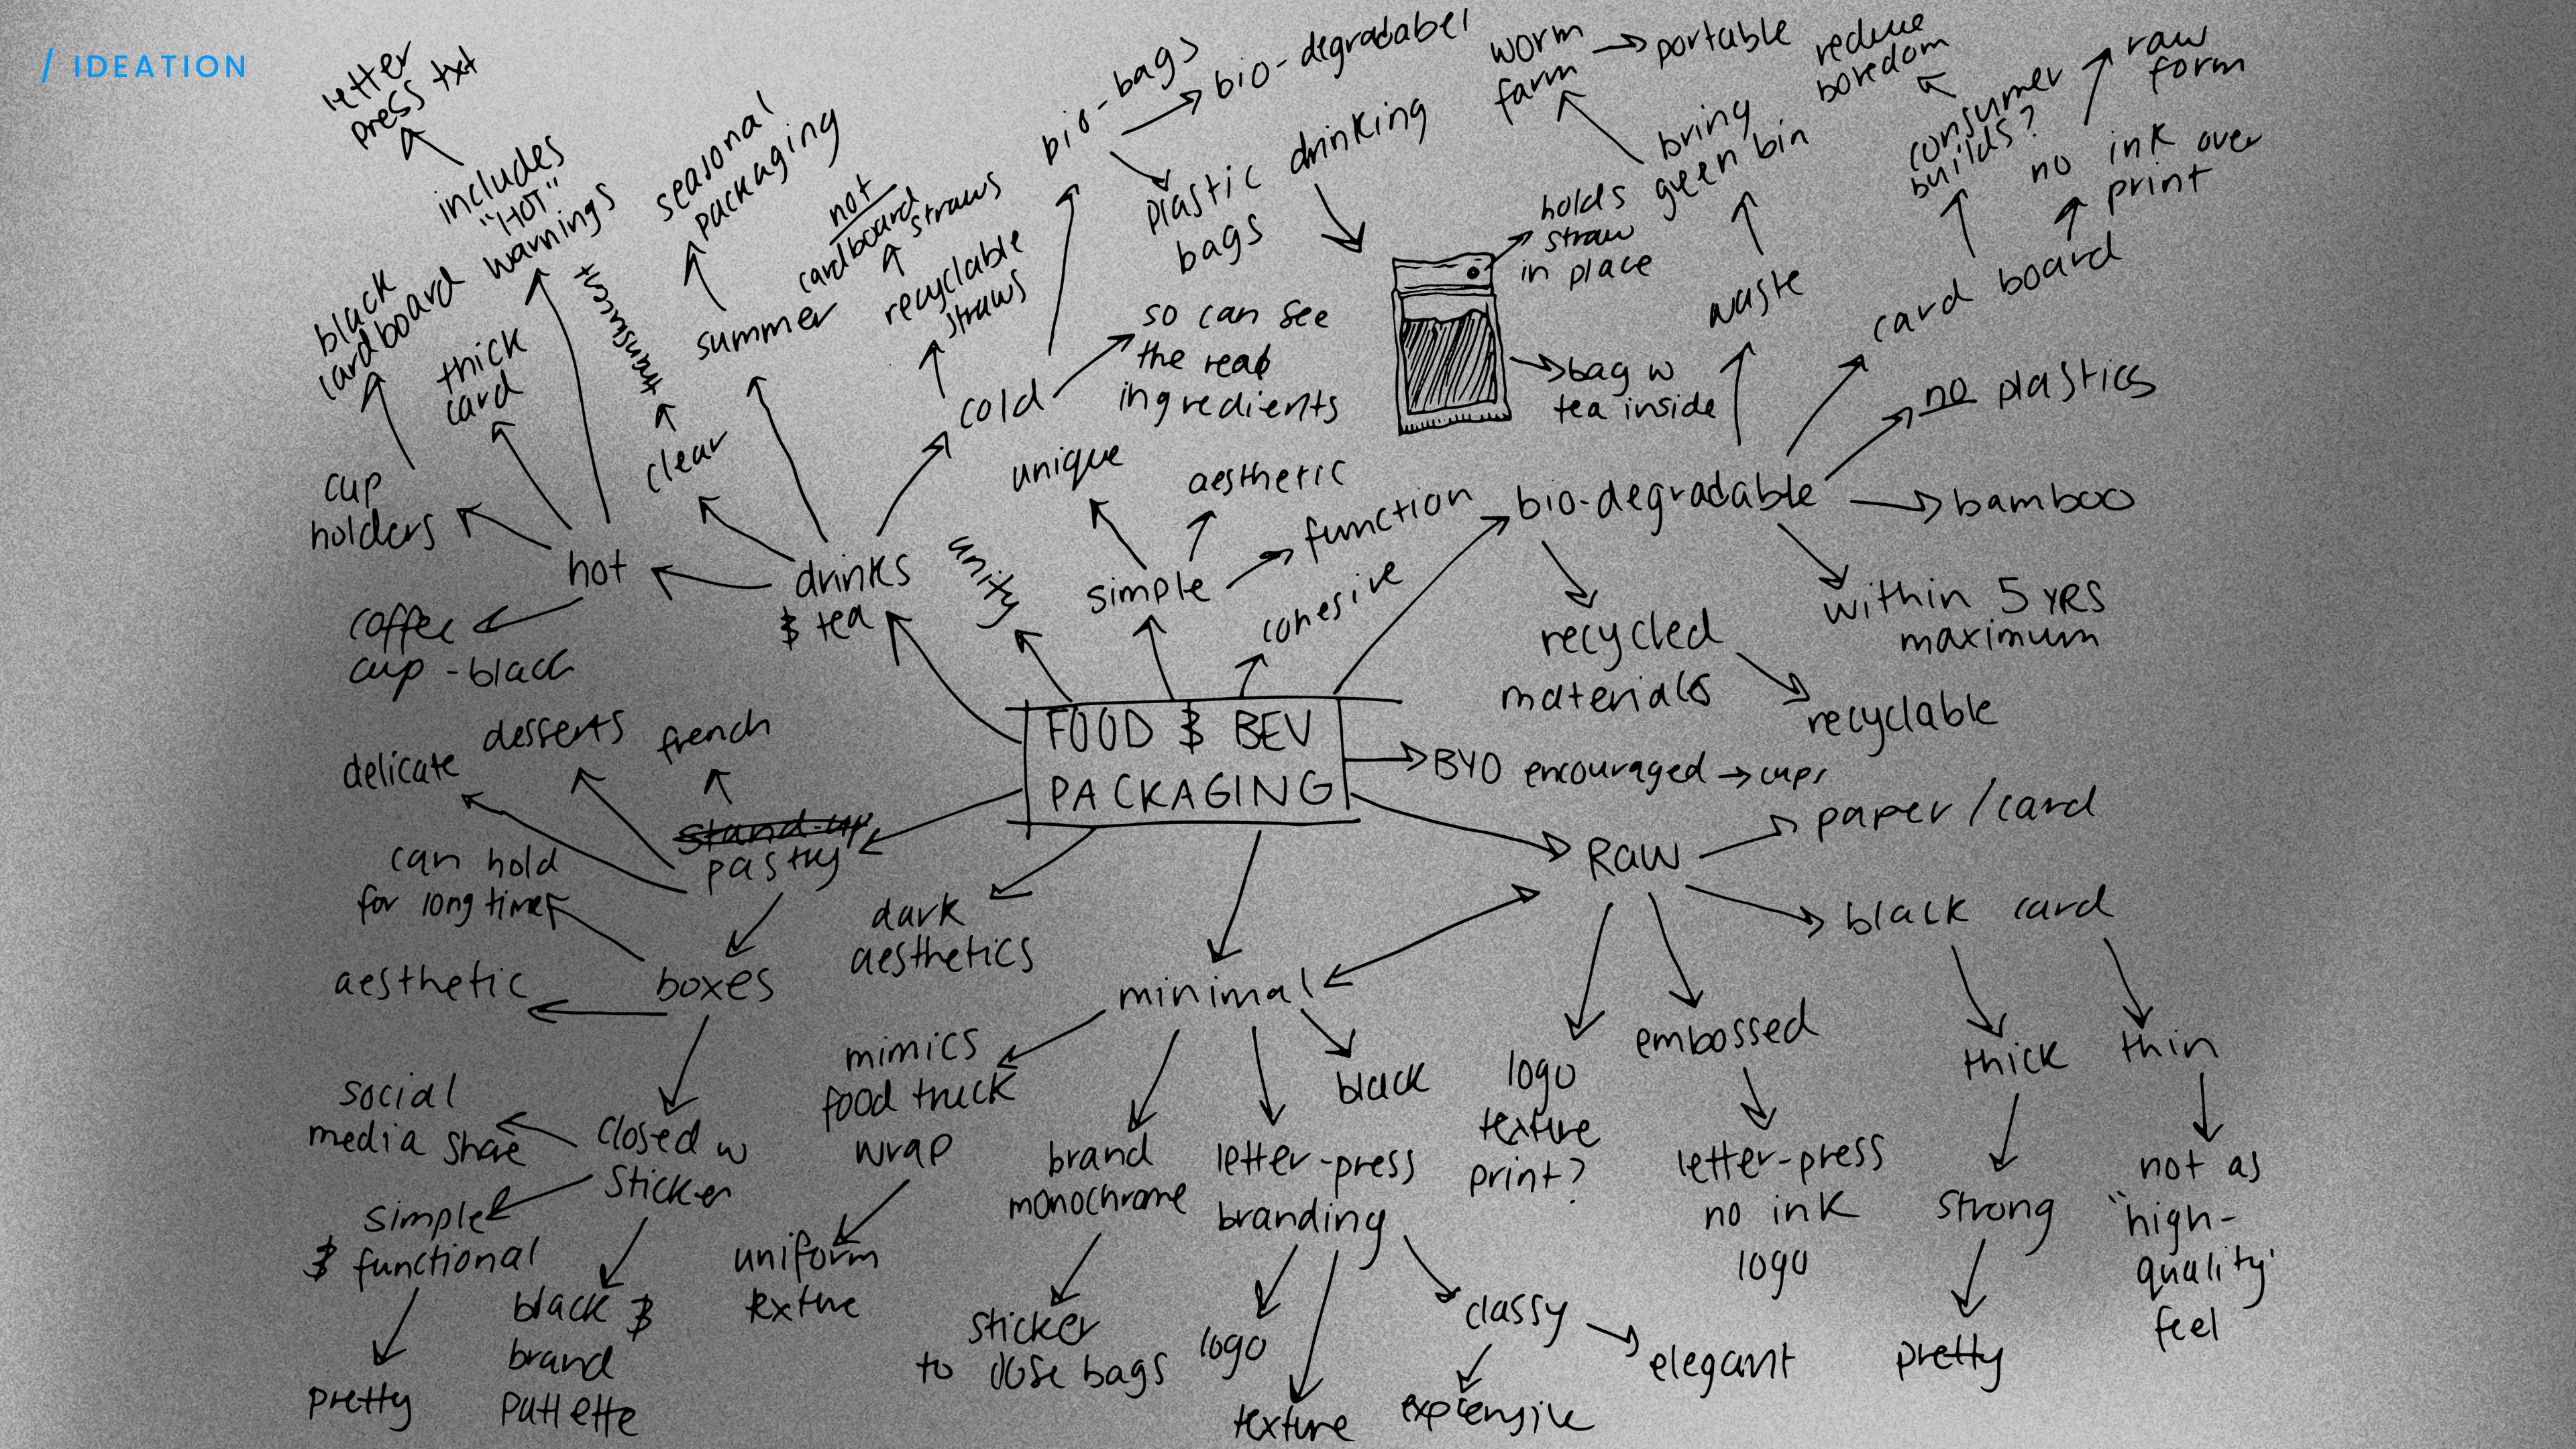 / IDEATION
letter
press txt
includes
"HOT"
warnings
black
cardboard
thick
card
cup
holders
hot
coffee
cup - black
translucent
clear
seasonal
packaging
summer
not
cardboard
straws
recyclable
straws
cold
drinks
& tea
bio-bags
bio-degradabel
plastic drinking
bags
so can see
the real
ingredients
holds
straw
in place
bag w
tea inside
worm
farm
portable
bring
green bin
waste
reduce
boredom
consumer
builds?
raw
form
no ink over
print
card board
no plastics
bio-degradable
bamboo
within 5 yrs
maximum
recycled
materials
recyclable
unique
aesthetic
function
simple
unity
cohesive
FOOD & BEV
PACKAGING
BYO encouraged
cups
desserts
french
delicate
stand-up
pastry
can hold
for long time
aesthetic
boxes
social
media share
closed w
sticker
simple
& functional
pretty
black &
brand
pallette
dark
aesthetics
minimal
mimics
food truck
wrap
uniform
texture
brand
monochrome
sticker
to close bags
letter-press
branding
logo
texture
classy
expensive
elegant
black
Raw
paper/card
black card
logo
texture
print?
embossed
letter-press
no ink
logo
thick
strong
pretty
thin
not as
"high-
quality'
feel